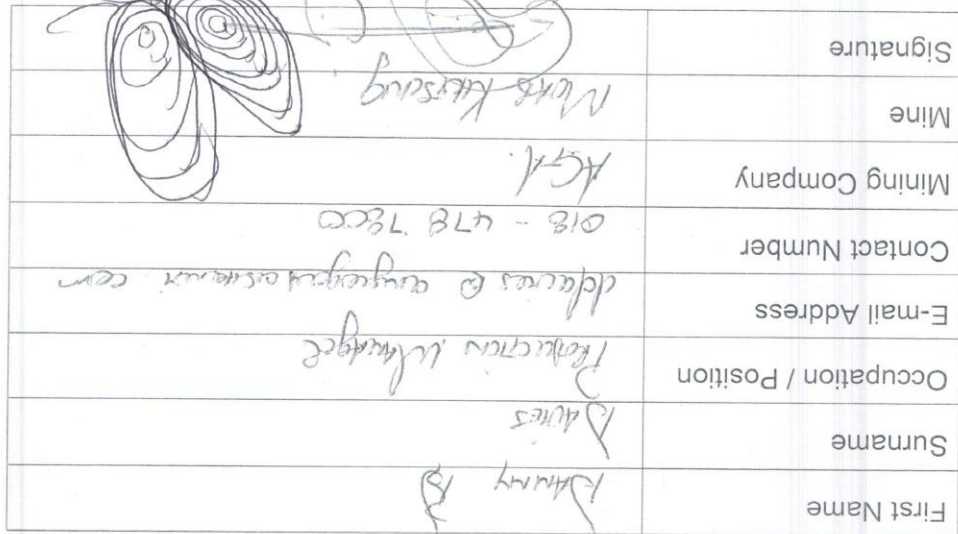 First Name Danny
Surname Davies
Occupation / Position Production Manager
E-mail Address ddavies @ anglogoldashanti com
Contact Number 018 - 478 7800
Mining Company AGA.
Mine Moab Khotsong
Signature